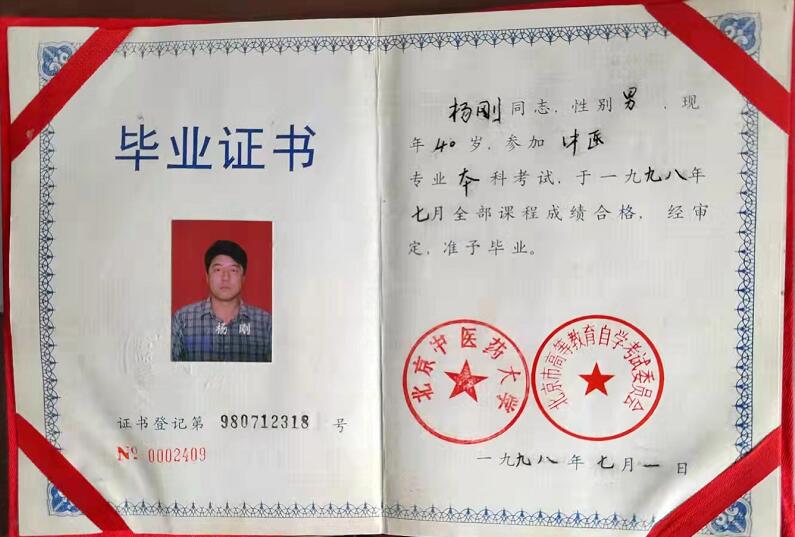 毕业证书
杨 刚
证书登记第 980712318 号
№ 0002409
杨刚同志，性别男，现
年40岁，参加中医
专业本科考试，于一九九八年
七月全部课程成绩合格，经审
定，准予毕业。
北京中医药大学
北京市高等教育自学考试委员会
一九九八年七月一日